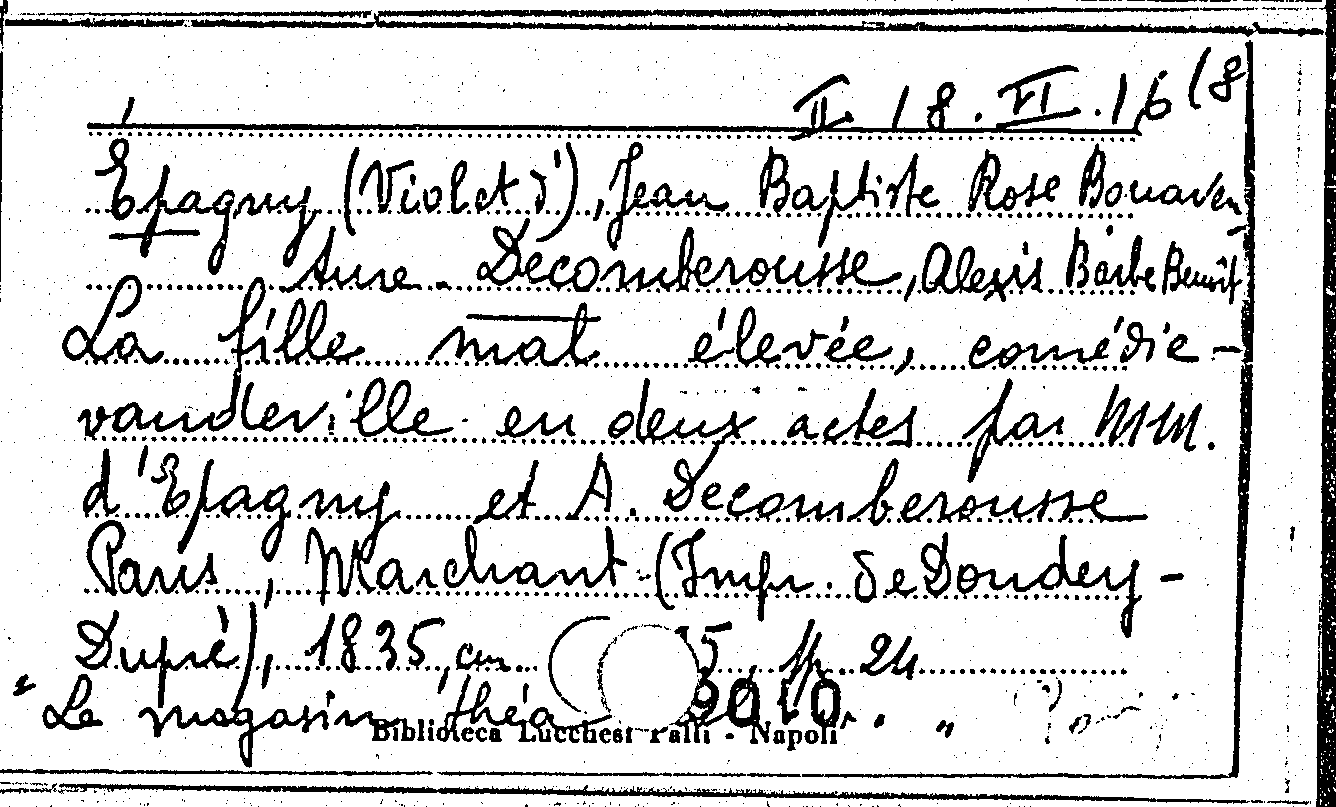 II. 18. VI. 16 (8
Épagny (Violet d'), Jean Baptiste Rose Bonaven-
ture. Decomberousse, Alexis Barbe Benoît
La fille mal élevée, comédie-
vaudeville en deux actes par MM.
d'Epagny et A. Decomberousse
Paris, Marchant (Impr. de Dondey-
Dupré), 1835, cm. 5, pp. 24
Le magasin théa
Biblioteca Lucchesi Palli - Napoli